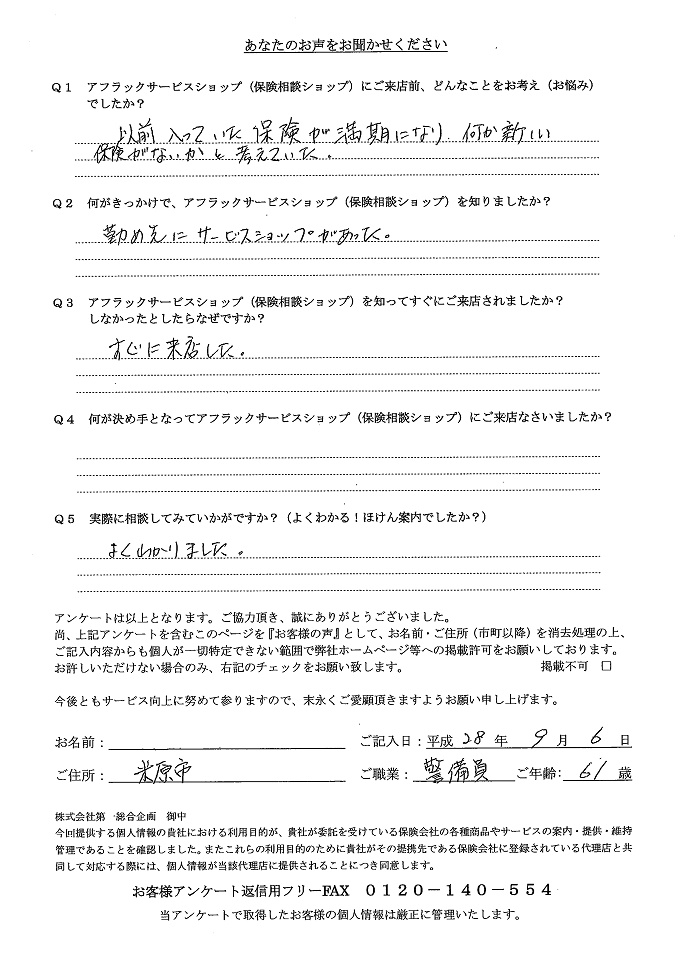 あなたのお声をお聞かせください
Q1 アフラックサービスショップ(保険相談ショップ)にご来店前、どんなことをお考え(お悩み)
でしたか?
以前入っていた保険が満期になり 何か新しい
保険がないかと考えていた。
Q2 何がきっかけで、アフラックサービスショップ(保険相談ショップ)を知りましたか?
勤め先にサービスショップがあった。
Q3 アフラックサービスショップ(保険相談ショップ)を知ってすぐにご来店されましたか?
しなかったとしたらなぜですか?
すぐに来店した。
Q4 何が決め手となってアフラックサービスショップ(保険相談ショップ)にご来店なさいましたか?
Q5 実際に相談してみていかがですか?(よくわかる!ほけん案内でしたか?)
よくわかりました。
アンケートは以上となります。ご協力頂き、誠にありがとうございました。
尚、上記アンケートを含むこのページを『お客様の声』として、お名前・ご住所(市町以降)を消去処理の上、
ご記入内容からも個人が一切特定できない範囲で弊社ホームページ等への掲載許可をお願いしております。
お許しいただけない場合のみ、右記のチェックをお願い致します。 掲載不可 □
今後ともサービス向上に努めて参りますので、末永くご愛顧頂きますようお願い申し上げます。
お名前: ご記入日:平成 28 年 9 月 6 日
ご住所: 米原市 ご職業: 警備員 ご年齢: 61 歳
株式会社第一総合企画 御中
今回提供する個人情報の貴社における利用目的が、貴社が委託を受けている保険会社の各種商品やサービスの案内・提供・維持
管理であることを確認しました。またこれらの利用目的のために貴社がその提携先である保険会社に登録されている代理店と共
同して対応する際には、個人情報が当該代理店に提供されることにつき同意します。
お客様アンケート返信用フリーFAX 0120-140-554
当アンケートで取得したお客様の個人情報は厳正に管理いたします。